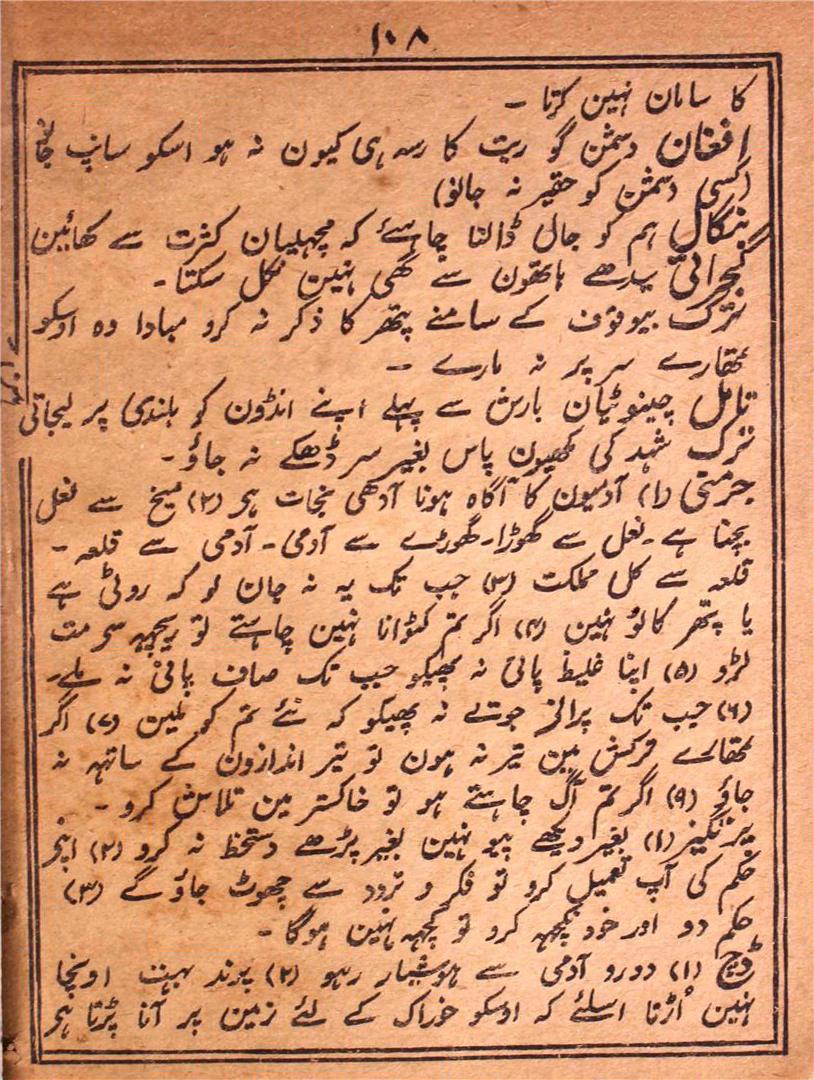 ۱۰۸
کا سامان نہین کرتا ۔
افغان دشمن گو ریت کا رسہ ہی کیون نہ ہو اسکو سانپ جانو
(کسی دشمن کو حقیر نہ جانو)
بنگال ہم کو جال ڈالنا چاہئے کہ مچھلیان کثرت سے کھائین
گجراتی سیدھے ہاتھون سے گھی نہین نکل سکتا ۔
ترک بیوقوف کے سامنے پتھر کا ذکر نہ کرو مبادا وہ اوسکو
تمھارے سر پر نہ مارے ۔
تامل چینوٹیان بارش سے پہلے اپنے انڈون کو بلندی پر لیجاتی
ترک شہد کی مکھیون پاس بغیر سر ڈھکے نہ جاؤ ۔
جرمنی (۱) آدمیون کا آگاہ ہونا آدھی نجات ہی (۲) میخ سے نعل
بچتا ہے ۔ نعل سے گھوڑا ۔ گھوڑے سے آدمی ۔ آدمی سے قلعہ ۔
قلعہ سے کل مملکت (۳) جب تک یہ نہ جان لو کہ روٹی ہے
یا پتھر کاٹو نہین (۴) اگر تم کٹوانا نہین چاہتے تو ریچھہ سے مت
لڑو (۵) اپنا غلیظ پانی نہ پھیکو جب تک صاف پانی نہ ملے ۔
(۶) جب تک پرانے جوتے نہ پھیکو کہ نئے تم کو ملین (۷) اگر
تمھارے ترکش مین تیر نہ ہون تو تیر اندازون کے ساتہہ نہ
جاؤ (۹) اگر تم آگ چاہتے ہو تو خاکستر مین تلاش کرو ۔
پرتگیز (۱) بغیر دیکھے پیو نہین بغیر پڑھے دستخط نہ کرو (۲) اپنے
حکم کی آپ تعمیل کرو تو فکر و تردد سے چھوٹ جاؤ گے (۳)
حکم دو اور خود کچہہ کرو تو کچہہ نہین ہوگا ۔
ڈچ (۱) دورو آدمی سے ہوشیار رہو (۲) پرند بہت اونچا
نہین اُڑتا اسلئے کہ اوسکو خوراک کے لئے زمین پر آنا پڑتا ہی